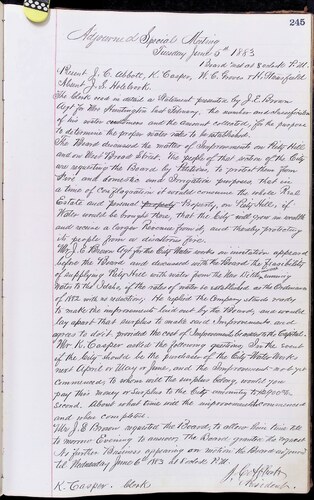 245
Adjourned Special Meeting
Tuesday June 5th 1883
Board met at 8 o'clock P.M.
Present J. C. Abbott, K. Casper, W. C. Grove & H. Wearfield
Absent J. S. Holbrook.
The clerk read in detail a Statement presented by J. E. Brown
Agt for Mr Huntington and Party, the number and description
of his water consumers and the amount collected, for the purpose
to determine the proper water rates to be established.
The Board discussed the matter of Improvements on Poly Hill
and on West Broad Street. The people of that section of the City
are requesting the Board by Petition, to protect them from
Fire and domestic and Irrigation purposes, that in
a time of conflagration it would consume the whole Real
Estate and personal property Property, on Poly Hill, if
Water would be brought there, that the City will grow in wealth
and receive a larger Revenue from it, and thereby protecting
its people from a disastrous fire.
Mr. J. E. Brown Agt for the City Water works on invitation appeared
before the Board and discussed with the Board the feasibility
of supplying Poly Hill with water from the
Water to the of the rates of water is established as the Ordinance
of 1882 with no reduction; He replied the Company stands ready
to make the improvements laid out by the Board, and would
lay apart that surplus to make such Improvements and
agree to do it provided the cost of Improvements be given to the Capital.
Mr K. Casper asked the following question: In the event
if the City should be the purchaser of the City Water Works
next April or May or June, and the Improvement not yet
Commenced, to whom will the surplus belong, would you
pay this money or surplus to the City amounting to
second. About what time will the improvements be commenced
and when completed.
Mr J. E. Brown requested the Board, to allow him time till
to morrow Evening to answer, The Board granted the request
No further Business appearing on motion the Board adjourned
till Wednesday June 6th 1883 at 8 o'clock P.M.
J. C. Abbott
President
K. Casper clerk